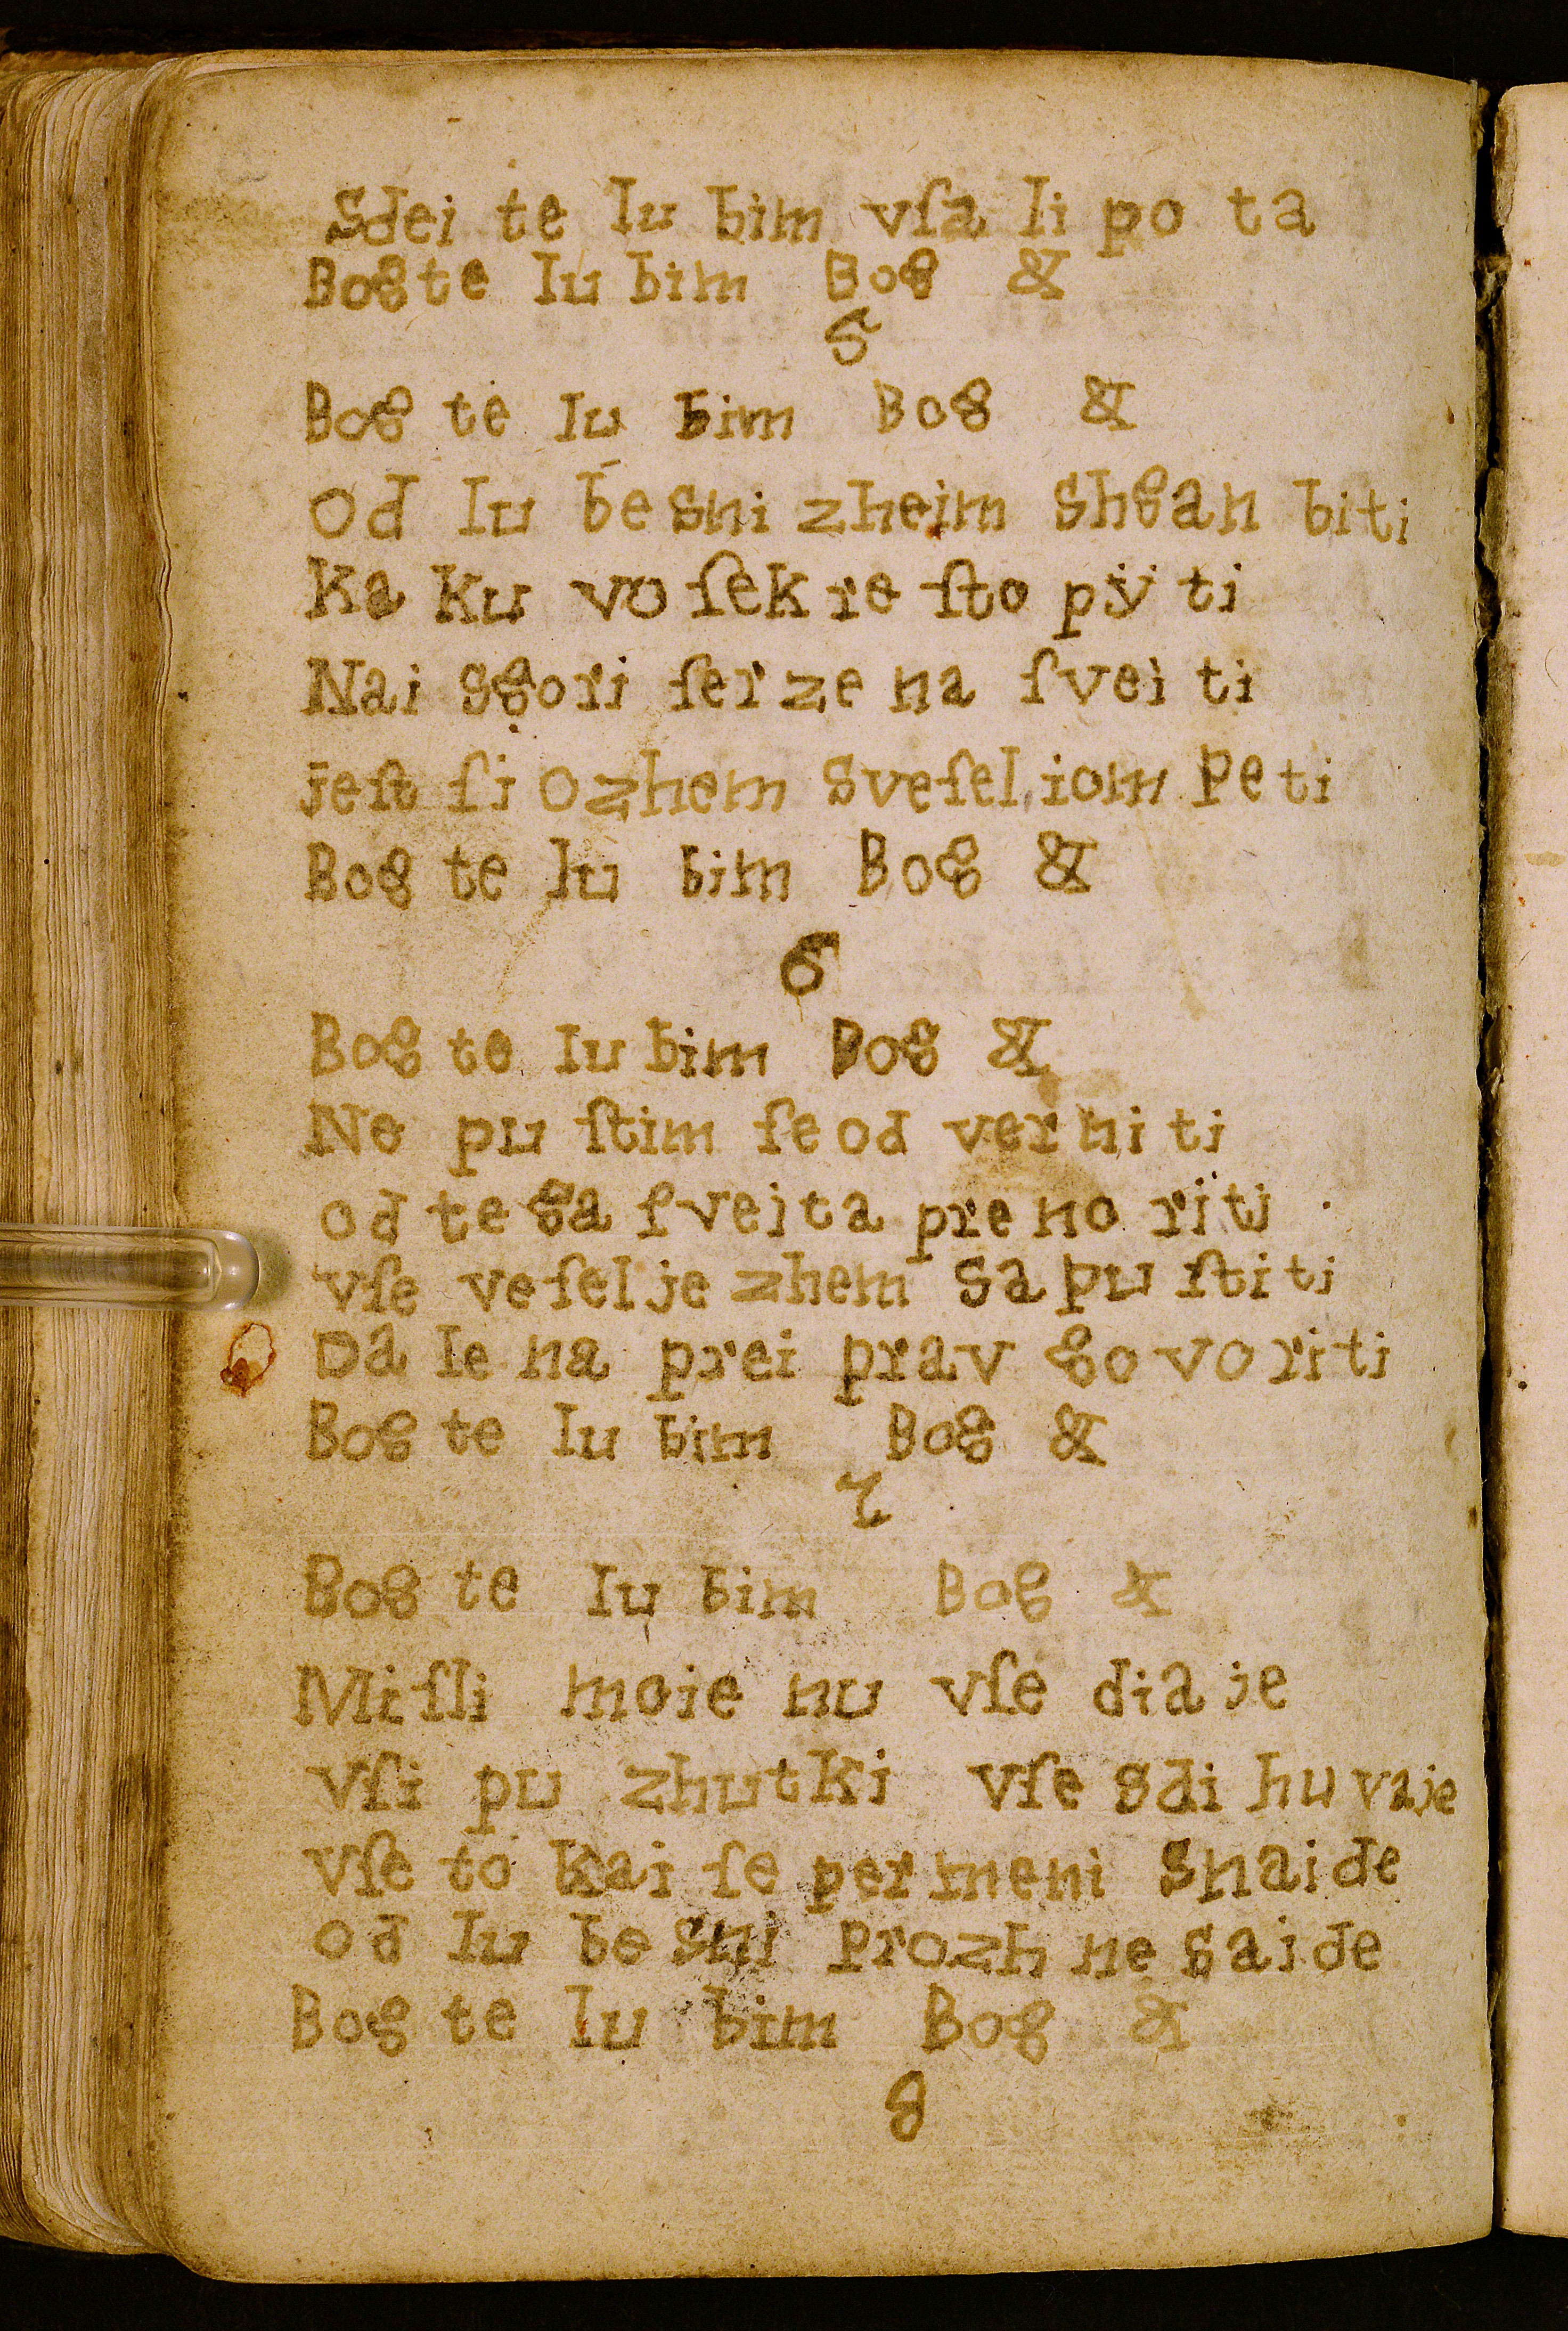 Sdei te lu bim vſa li po ta
Bog te lu bim Bog &
5
Bog te lu bim Bog &
od lu besni zheim shgan biti
Ka ku vo ſekre ſto pÿ ti
Nai sgori ſerze na ſvei ti
jeſt ſi ozhem sveſel iom peti
Bog te lu bim Bog &
6
Bog te lu bim Bog &
Ne pu ſtim ſe od ver ni ti
od te ga ſveita pre no riti
vſe veſelje zhem sa pu ſtiti
Da le na prei prav go vo riti
Bog te lu bim Bog &
7
Bog te lu bim Bog &
Miſli moie nu vſe dia je
Vſi pu zhutki vſe sdi hu vaje
Vſe to kai ſe per meni snaide
od lu be sni prozh ne saide
Bog te lu bim Bog &
8